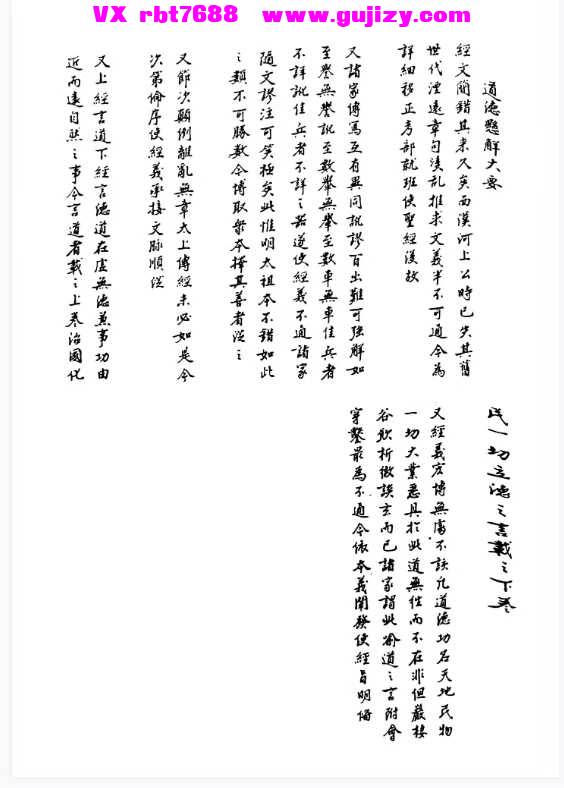 VX rbt7688 www.gujizy.com
道德懸解大要
經文簡錯其来久矣而漢河上公時已失其舊
世代湮遠章句淩乱推求文義半不可通今為
詳細移正各部就班使聖經復故
又諸家傳寫互有異同訛謬百出難可強解如
至譽無譽訛至數轝無轝至數車無車佳兵者
不詳訛佳兵者不詳之器遂使經義不通諸家
随文謬注可笑極矣此惟明太祖本不錯如此
之類不可勝數今博取衆本擇其善者從之
又節次顛倒離亂無章太上傳經未必如是今
次第倫序使經義承接文脉順從
又上經言道下經言德道在虛無德兼事功由
近而遠自然之事今言道者載之上卷治國化
民一切立德之言載之下卷
又經義宏博無處不該凡道德功名天地民物
一切大業悉具於此道無往而不在非但嚴棲
谷飲析微談玄而已諸家謂此為道之言附會
穿鑿最為不通今依本義闡發使經旨明備